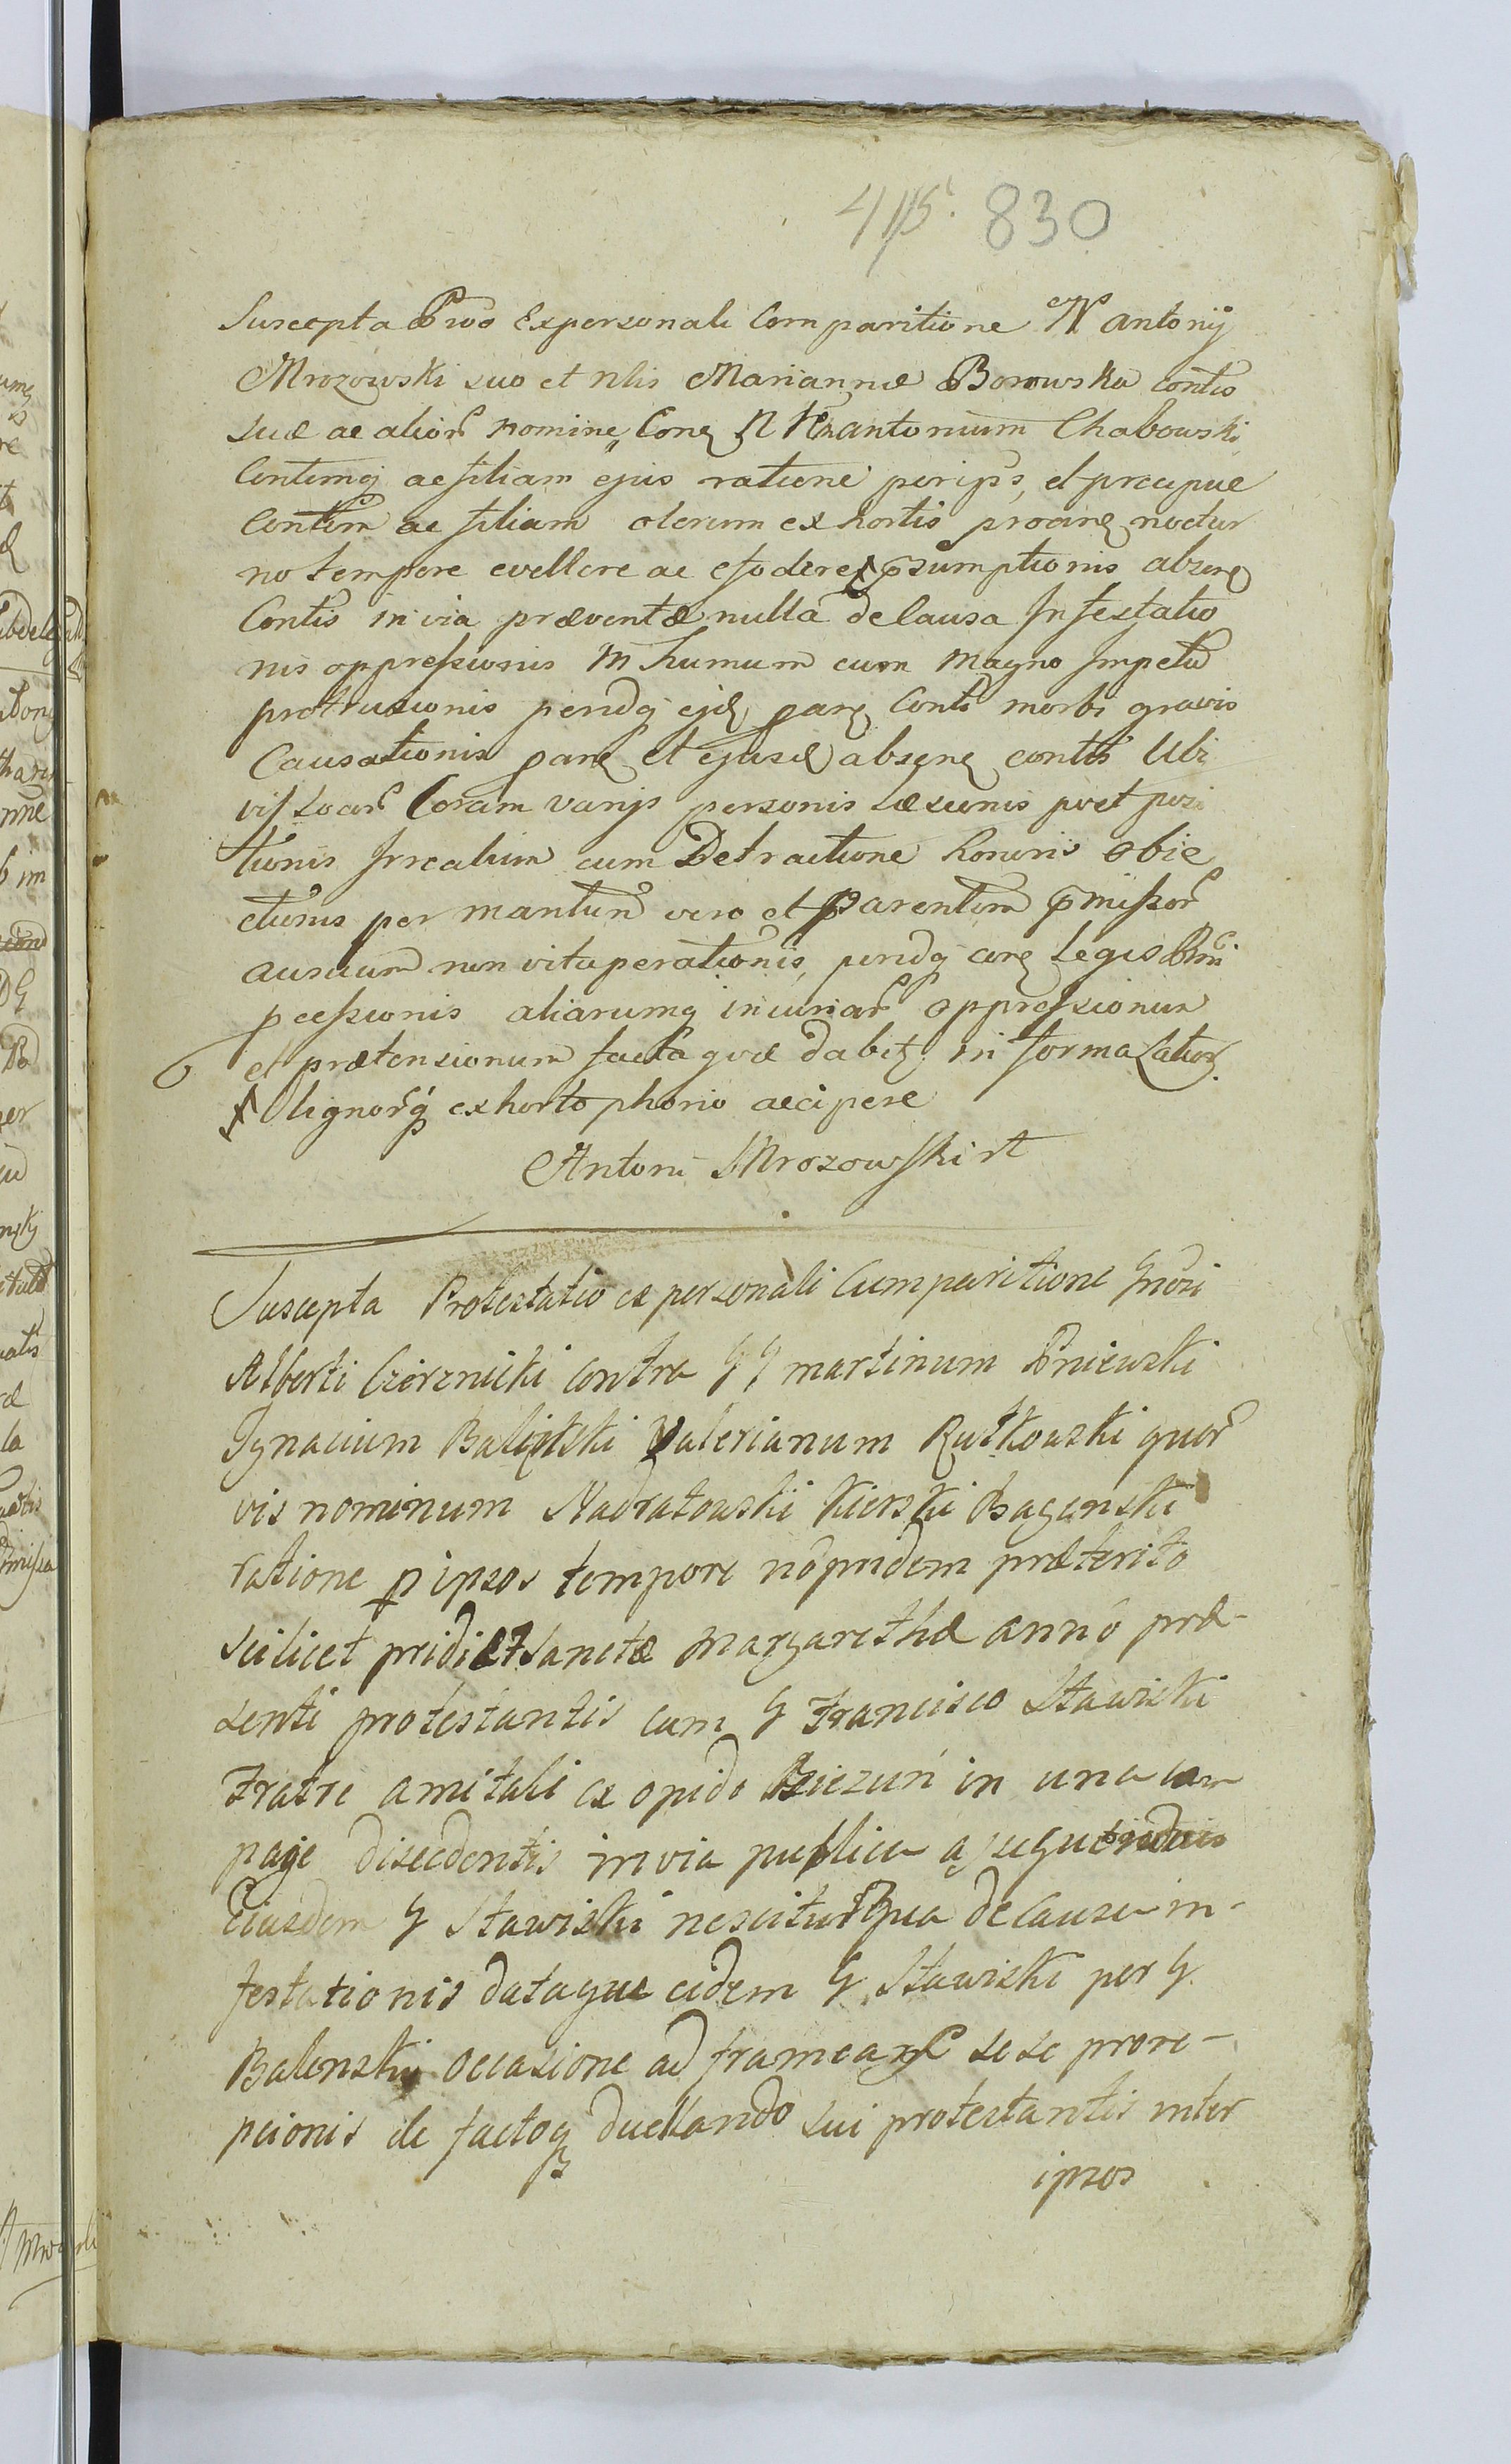 415. 830
Suscepta Pro͞o Expersonali Comparitione N Antonij
Mrozowski suo et Nlis Mariannæ Borowska Contis
suæ ac alior nomine, Con͞e N N antonium Chabowski
Contemq ac filiam ejus ratione per ips͞s, et præcipue
Contem ac filiam olerum ex hortis procin noctur
no tempore evellere ac efodere p͞sumptionis absen͞e
Contis in via præventæ nulla de Causa Infestatio
nis oppressionis in humum cum magno Impetu
protrusionis perindq ejd paritr Contis morbi gravis
Causationis par et ejusd absen contis Ubi
vis Locor Coram varijs personis Læsionis post posi
tionis Irrealium cum Detractione honoris obie
ctionis per mantum vero et Parentem p͞missor
ausuum non vituperationis, perindq con͞e Legis
pcessionis aliarumq iniuriar oppressionum
et prætensionum facta quæ dabitr in forma Latior
Lignorq ex horto phorio accipere
Antoni Mrozowski
Suscepta Protestatio ex personali Comparitione Gnosi
Alberti Czerznicki Contra G G martinum Pniewski
Ignacium Balinski Valerianum Rutkowski quor
vis nominum Nadratowski Kierski Bagenski
ratione p ipsos tempore nōpridem præterito
scilicet pridie Sanctæ Margarethæ anno præ-
senti protestantis cum G Francisco Stawiski
Fratre amitali ex opido Bieżuń in una com
page discedentis in via publica a
Eiusdem G Stawiski nescitur qua de Causa in-
festationis dataque eidem G Stawiski per G.
Balenski occasione ad frameas sese prore-
pcionis de factoq duellando sui protestantis inter
ipsos